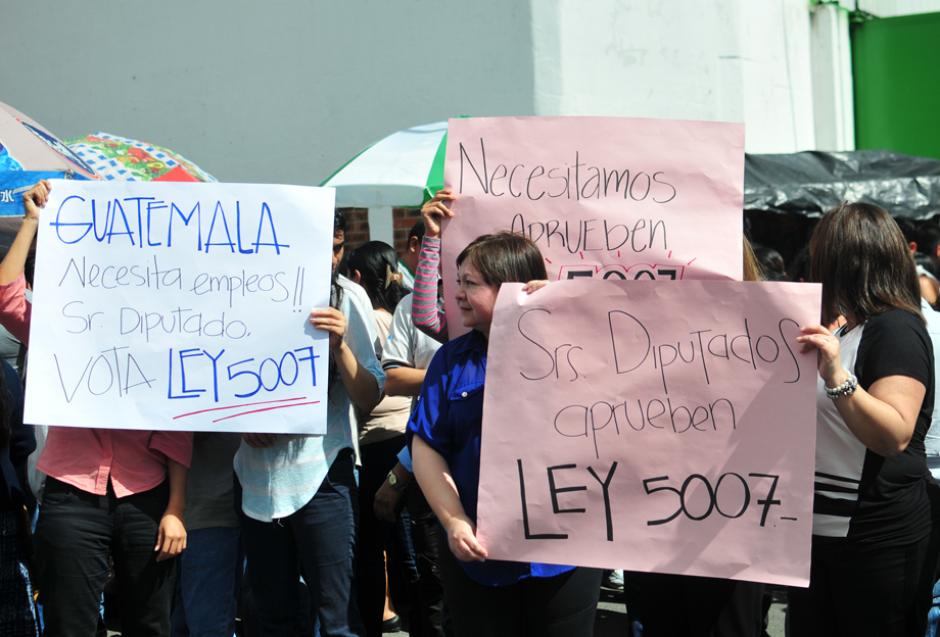 GUATEMALA
Necesita empleos!!
Sr. Diputado.
VOTA LEY 5007
Necesitamos
APRUEBEN
5007
Srs. Diputados
aprueben
LEY 5007.-